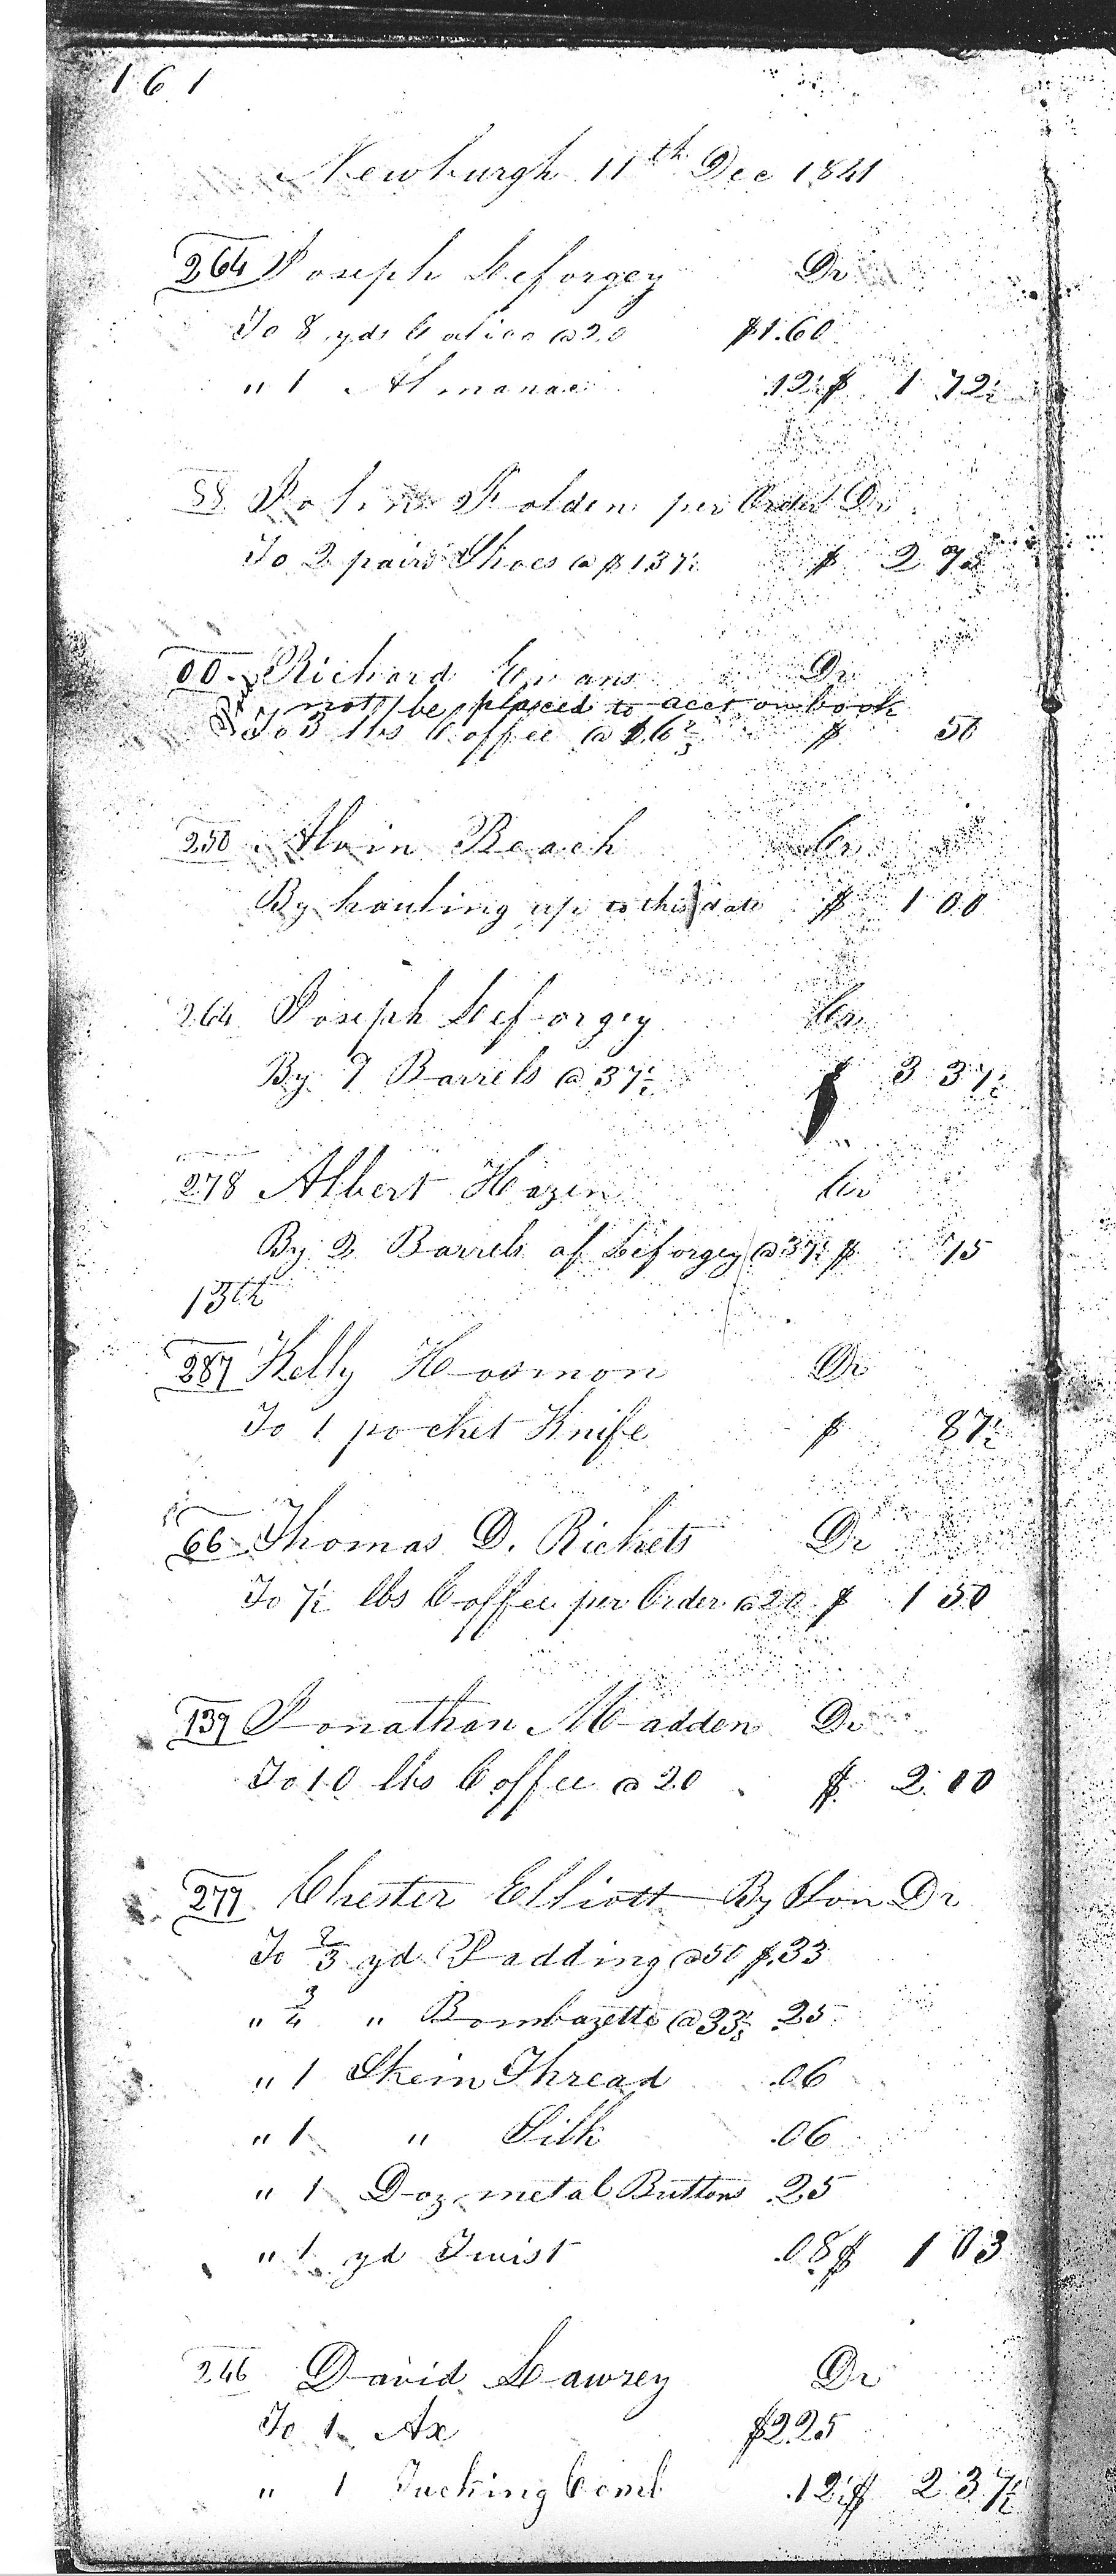 161
Newburgh 11th Dec 1841
264 Joseph Leforgey Dr
To 8 yds Calico @ 20 $1.60
" 1 Almanac .12½ $ 1 72½
88 John Folden per Order Dr
To 2 pairs Shoes @ $1 37½ $ 2 75
00 Richard Evans Dr
Paid not be placed to acct on book
To 3 lbs Coffee @ 16⅔ $ 50
250 Alvin Beach Cr
By hauling up to this date $ 1 00
264 Joseph Leforgey Cr
By 9 Barrels @ 37½ $ 3 37½
278 Albert Hazen Cr
By 2 Barrels of Leforgey @ 37½ $ 75
13th
287 Kelly Hosmon Dr
To 1 pocket Knife $ 87½
66 Thomas D. Rickets Dr
To 7½ lbs Coffee per Order @ 20 $ 1 50
139 Jonathan Madden Dr
To 10 lbs Coffee @ 20 $ 2.00
277 Chester Elliott By Son Dr
To ⅔ yd Padding @ 50 $.33
" ¾ " Bombazette @ 33⅓ .25
" 1 Skein Thread .06
" 1 " Silk .06
" 1 Doz metal Buttons .25
" 1 yd Twist .08 $ 1 03
246 David Lawrey Dr
To 1 Ax $2.25
" 1 Tucking Comb .12½ $ 2 37½